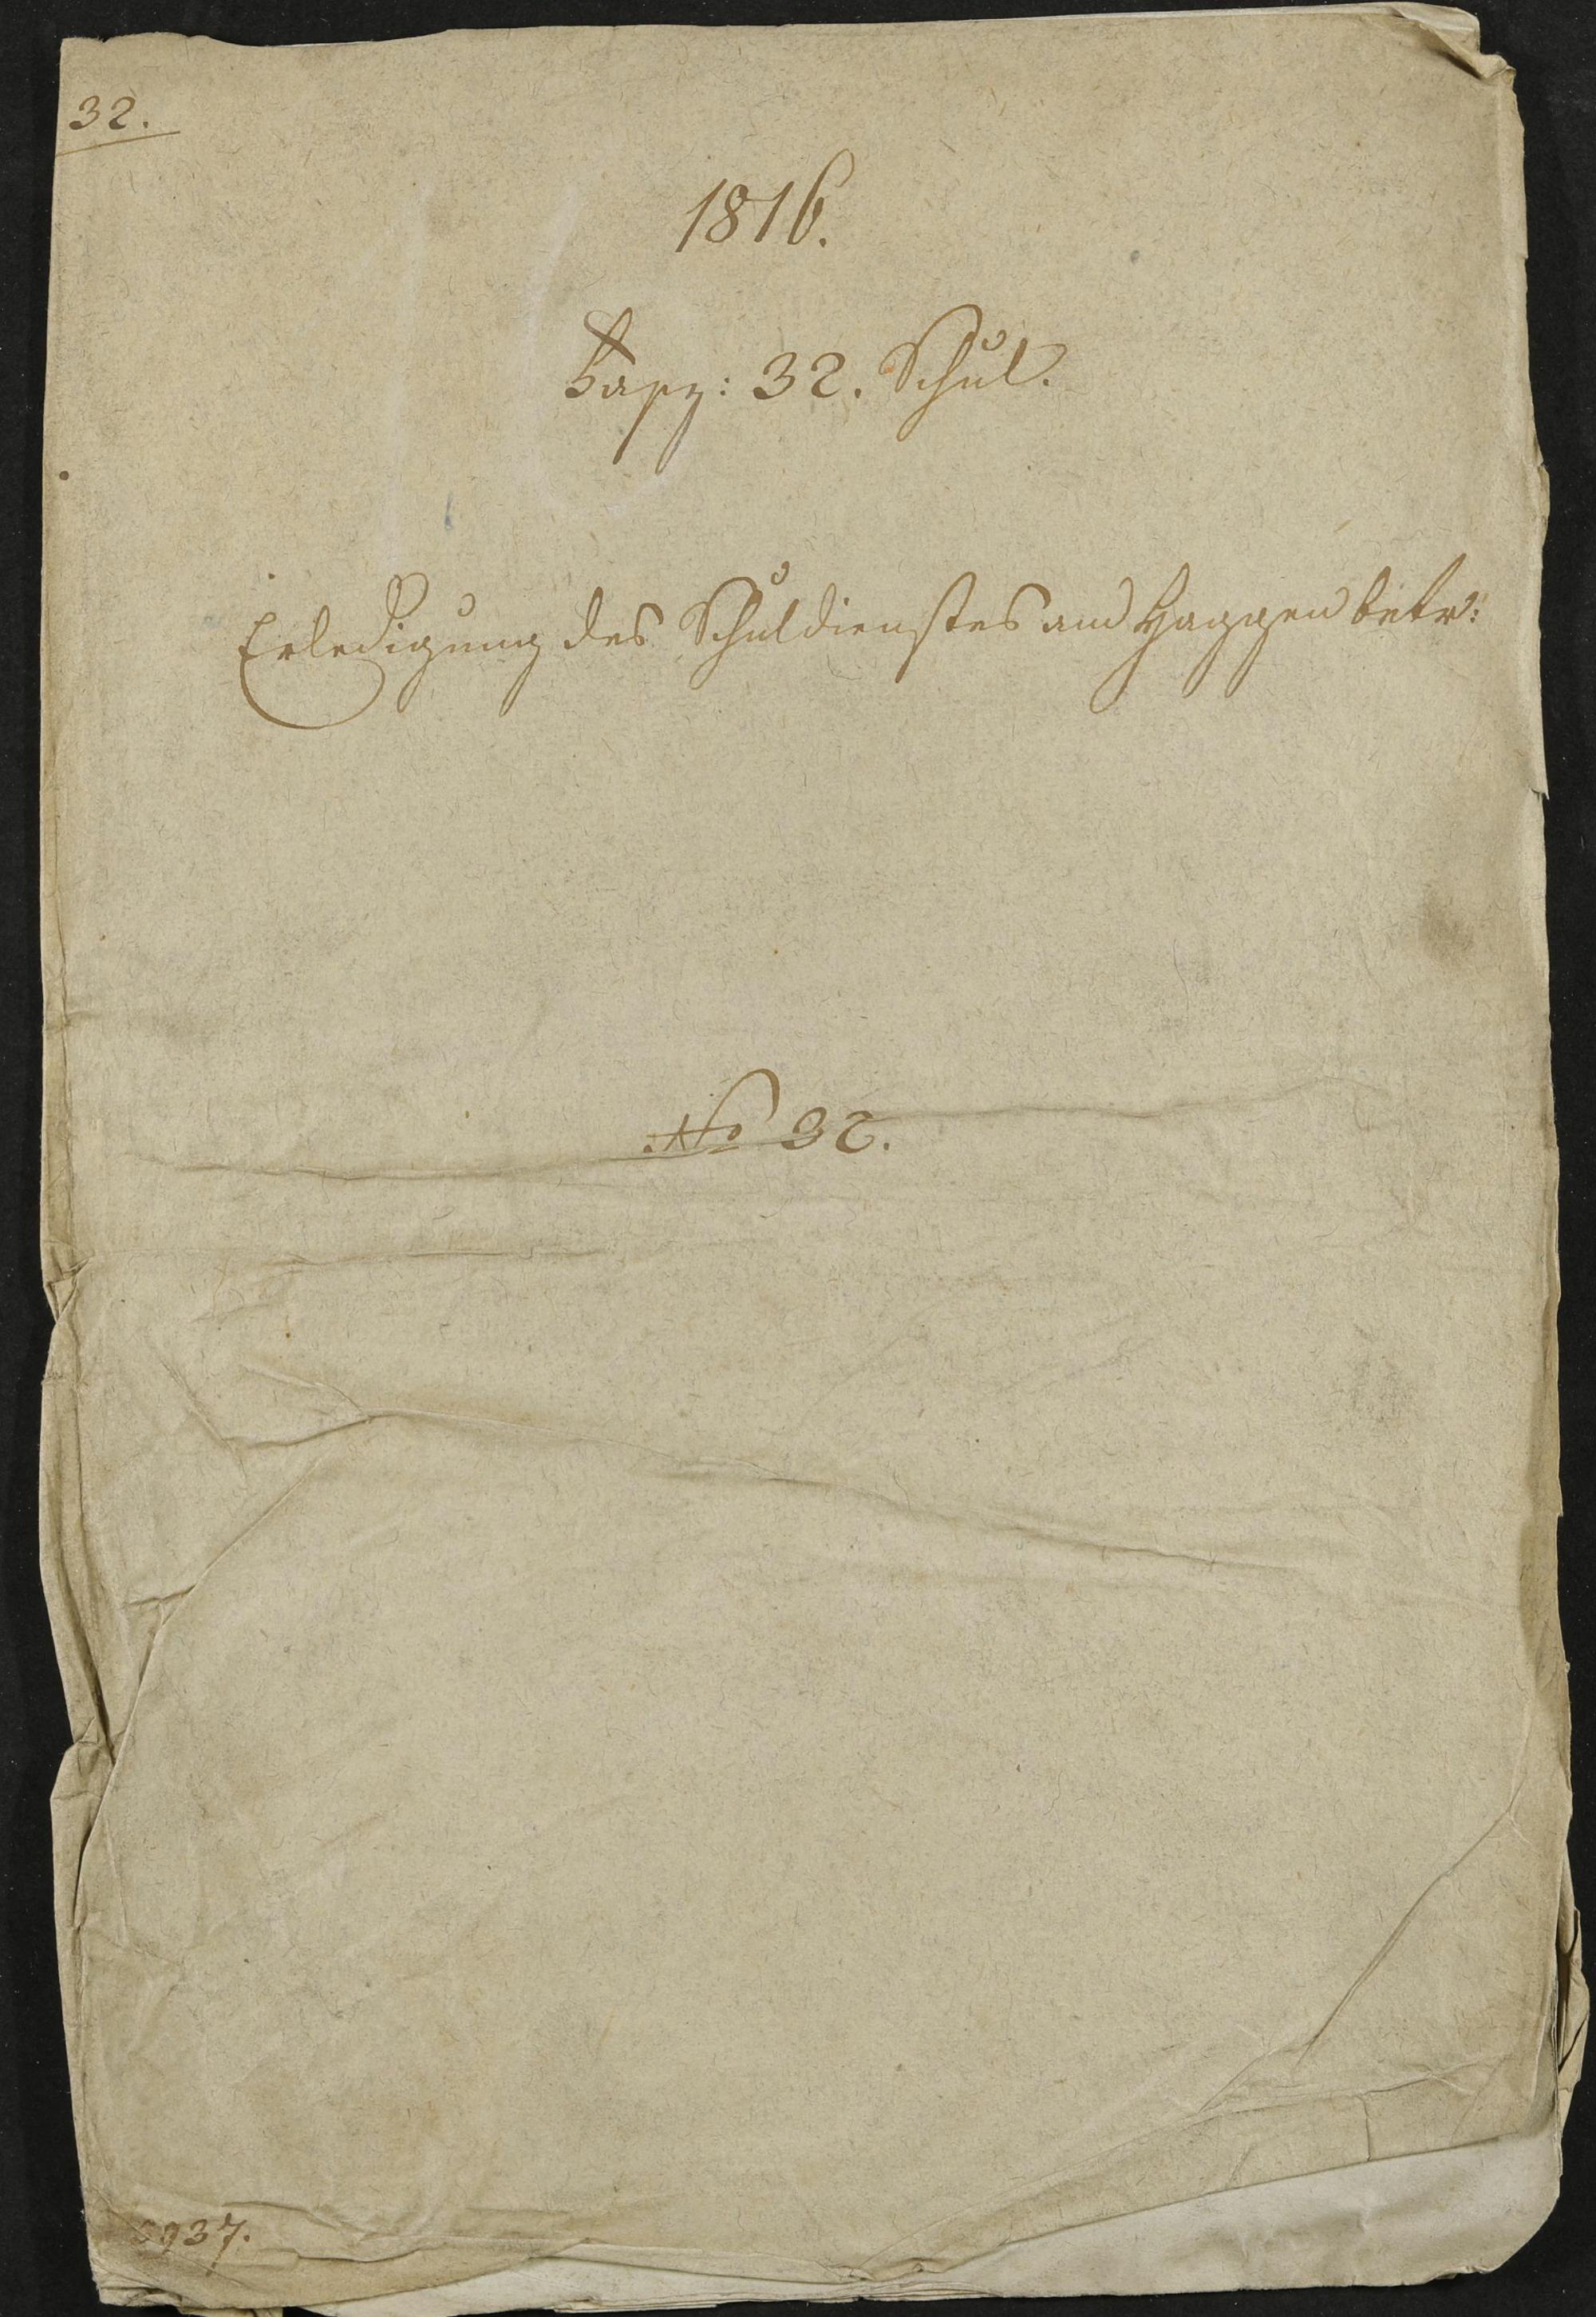 32.
1816.
Fasz: 32. Schul.
Erledigung des Schuldienstes am Haggen betr:
No 32.
937.